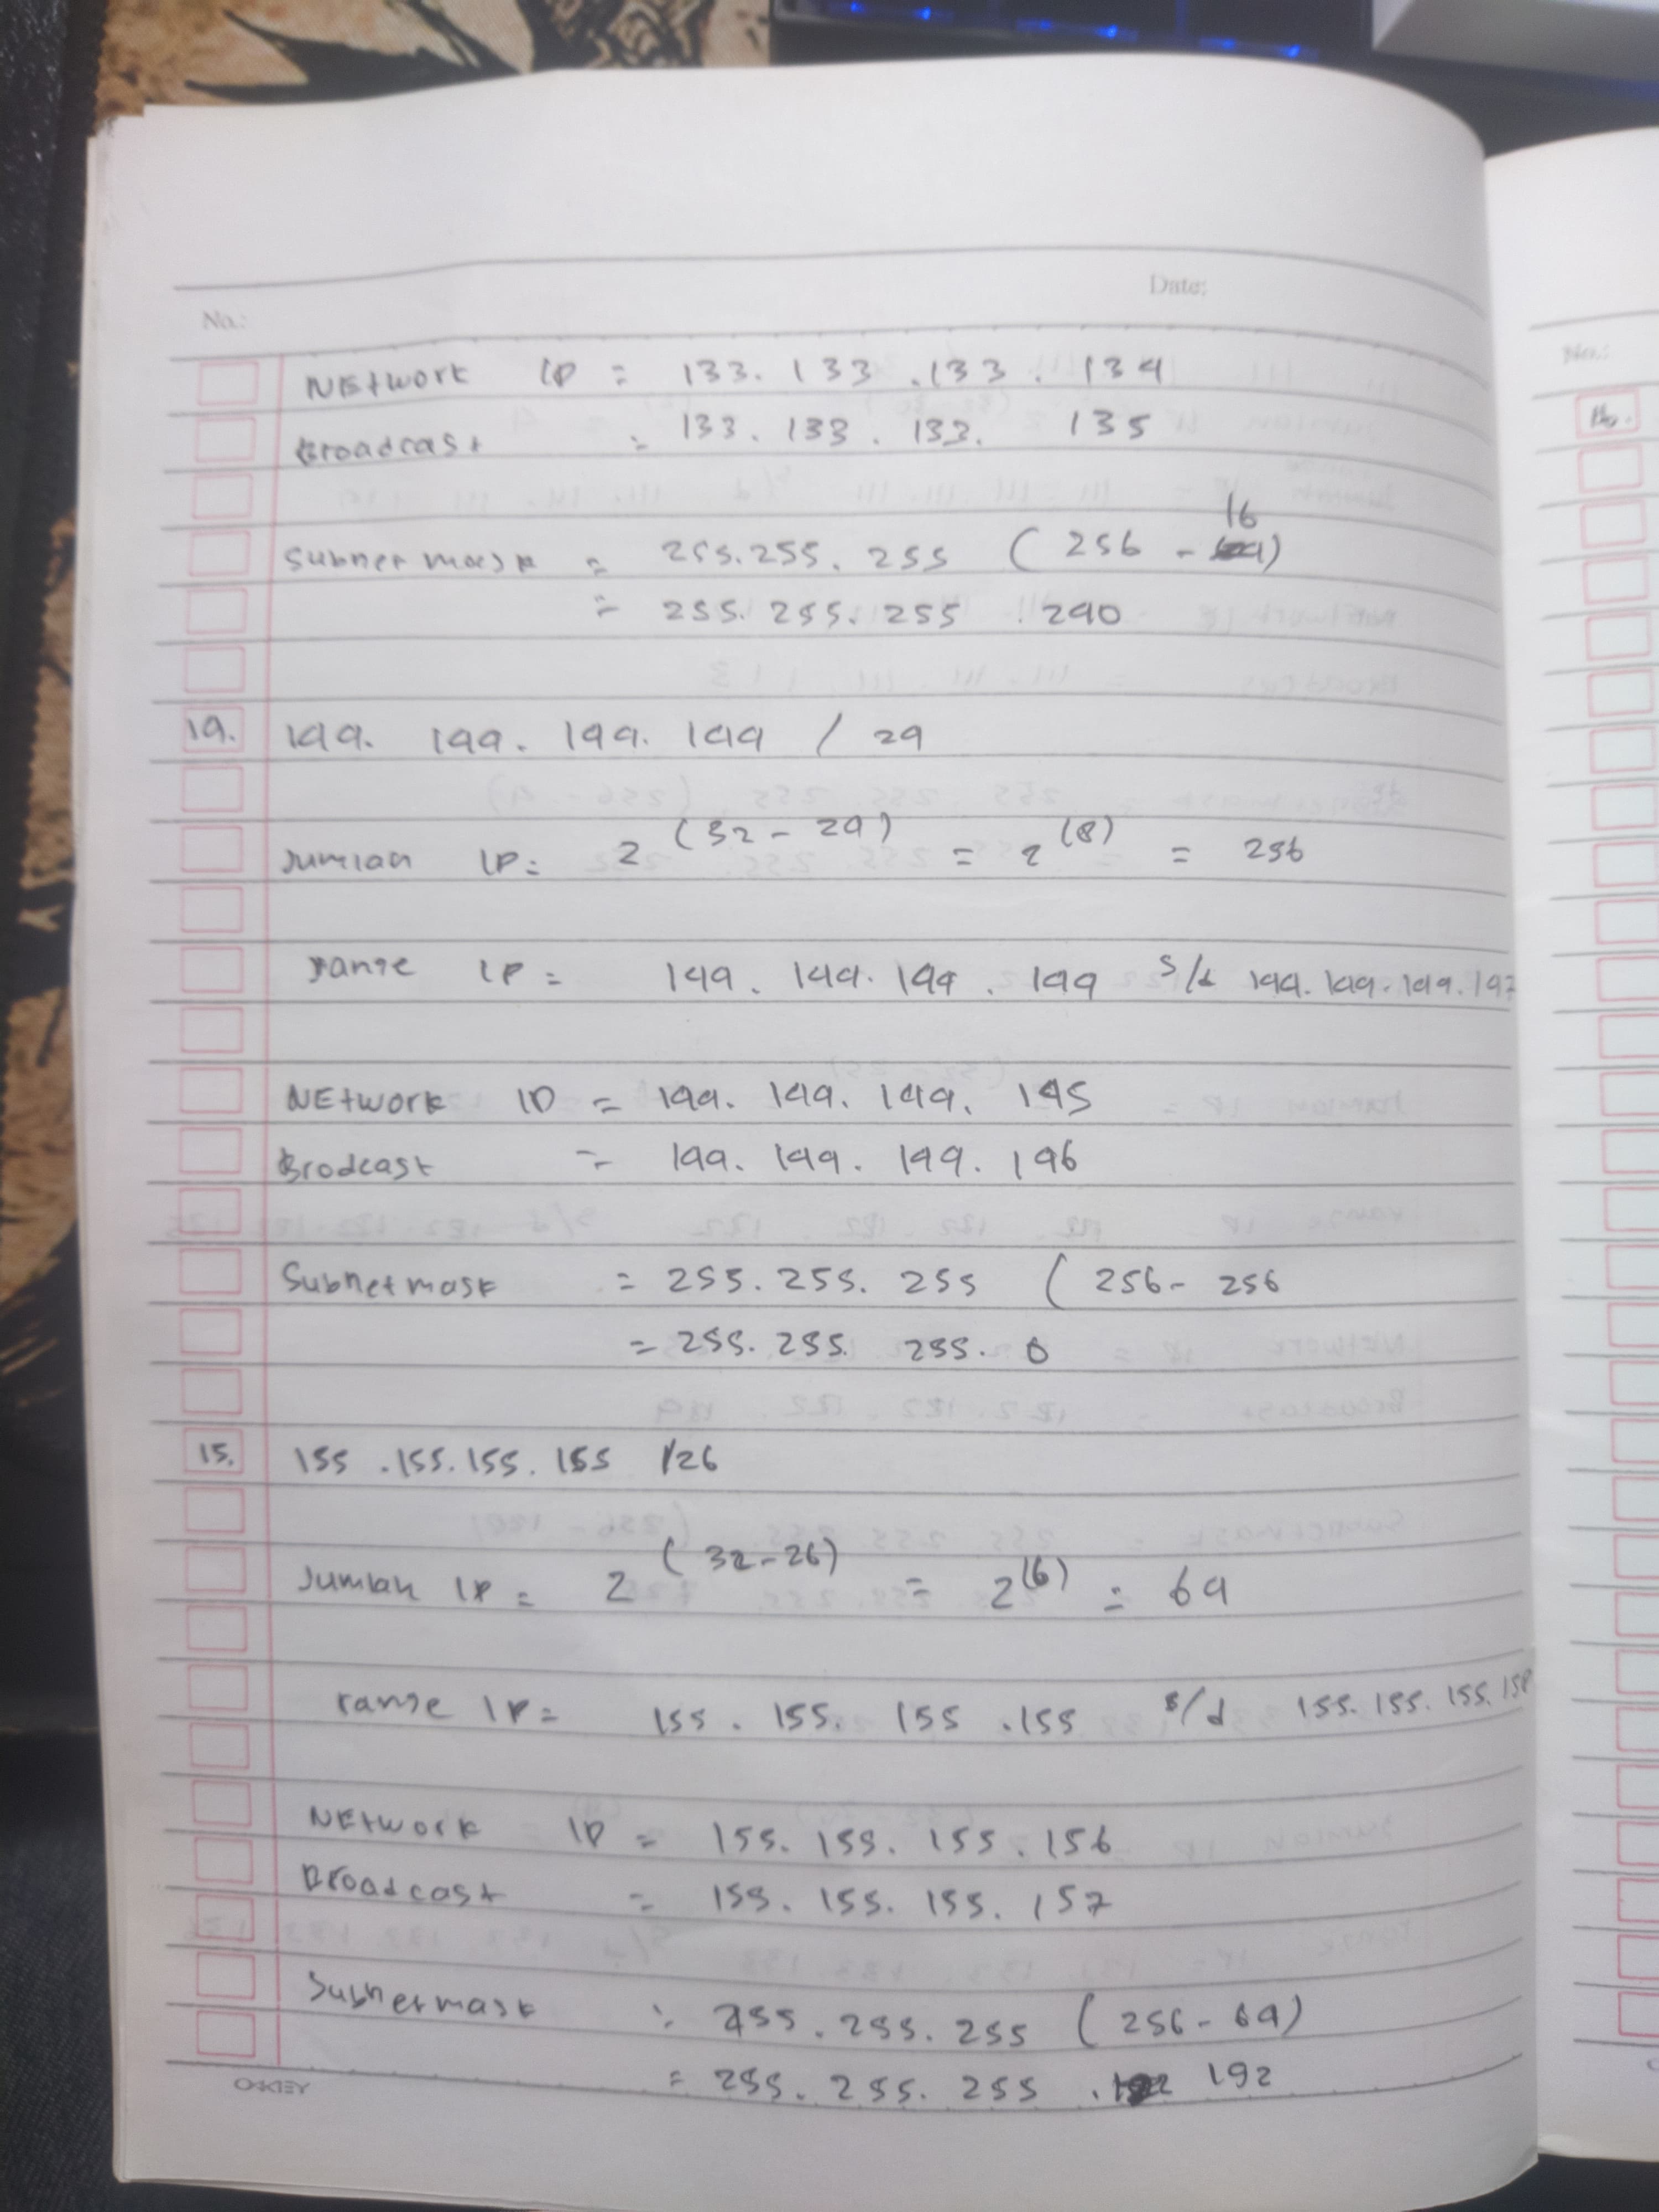 No.:
Date:
NEtwork IP = 133. 133 .133. 134
Broadcast = 133. 133. 133. 135
16
Subnet mask = 255.255. 255 ( 256 - )
= 255. 255. 255 . 240
14. 144. 144. 144. 144 / 24
Jumlah IP = 2 (32 - 24) = 2 (8) = 256
range IP = 144. 144. 144 . 144 s/d 144. 144. 144. 147
NEtwork ID = 144. 144. 144. 145
Brodcast = 144. 144. 144. 146
Subnetmask = 255. 255. 255 ( 256 - 256
= 255. 255. 255. 0
15. 155 .155. 155. 155 /26
Jumlah IP = 2 ( 32-26) = 2(6) = 64
range IP = 155. 155. 155 .155 s/d 155. 155. 155. 158
NEtwork ID = 155. 155. 155. 156
Broadcast = 155. 155. 155. 157
Subnetmask = 255. 255. 255 ( 256 - 64)
= 255. 255. 255 . 192
No.:
16.